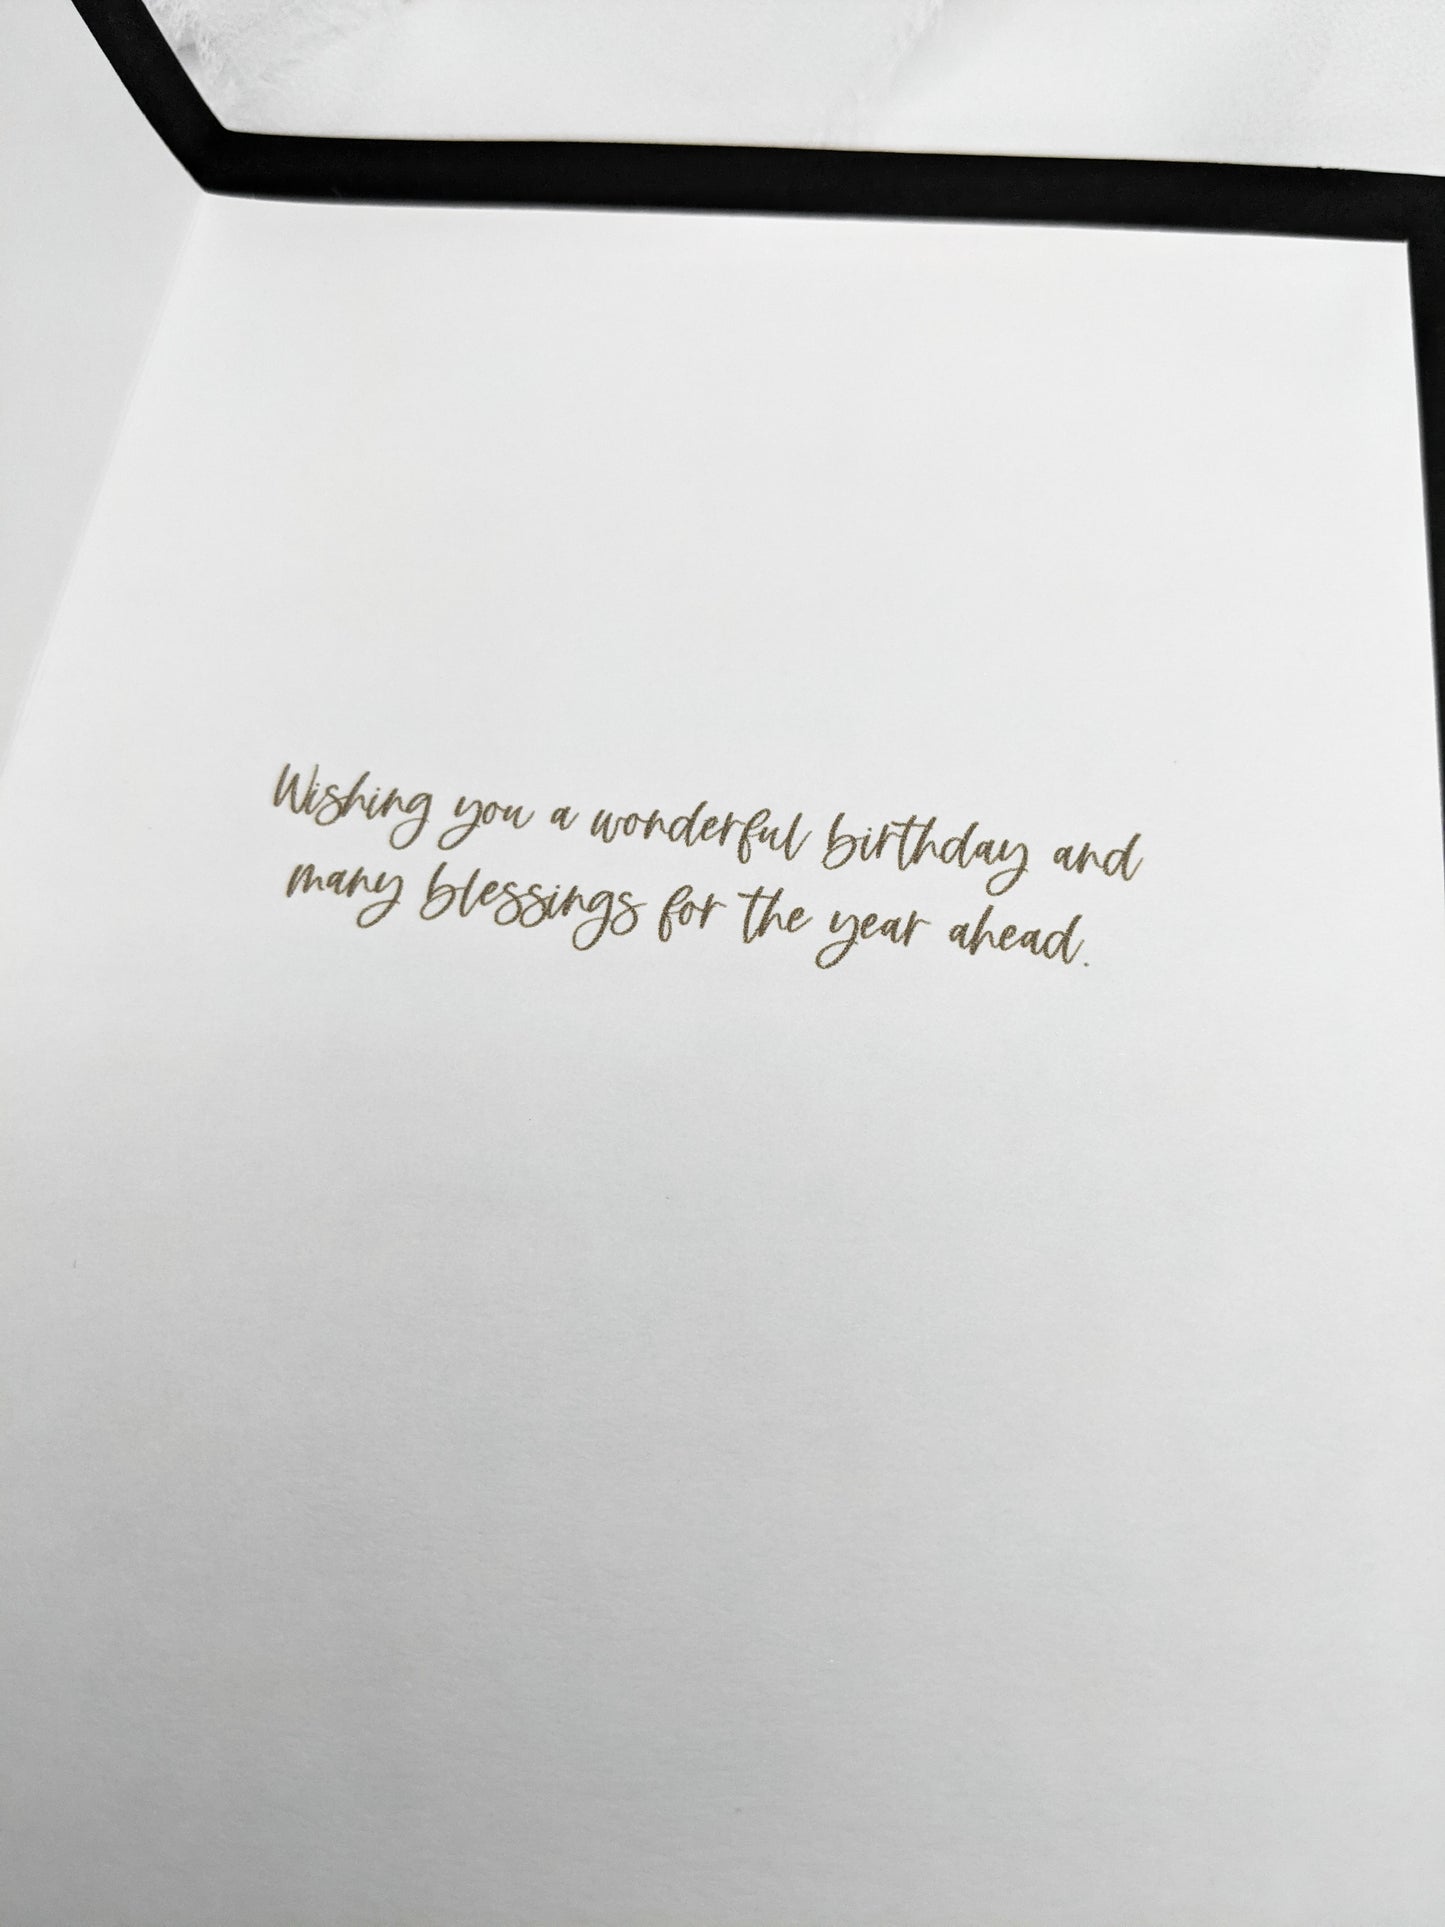 Wishing you a wonderful birthday and
many blessings for the year ahead.